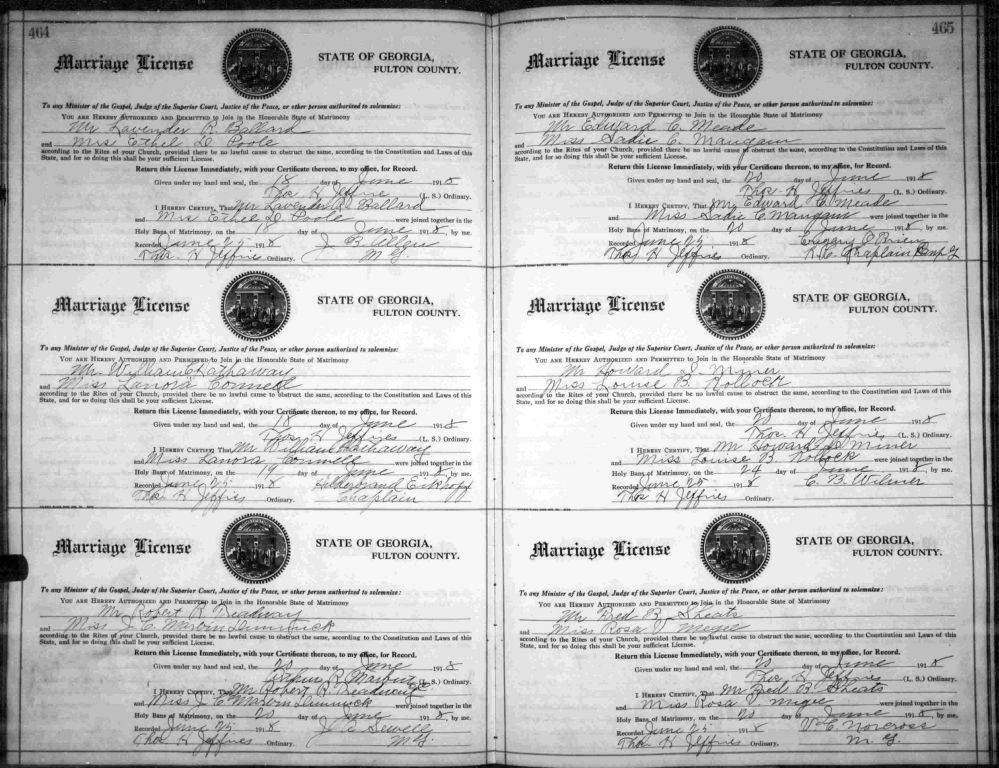 464
Marriage License
STATE OF GEORGIA,
FULTON COUNTY.
To any Minister of the Gospel, Judge of the Superior Court, Justice of the Peace, or other person authorized to solemnize:
YOU ARE HEREBY AUTHORIZED AND PERMITTED to Join in the Honorable State of Matrimony
Mr Lavender R. Ballard
and Miss Ethel D. Poole
according to the Rites of your Church, provided there be no lawful cause to obstruct the same, according to the Constitution and Laws of this
State, and for so doing this shall be your sufficient License.
Return this License Immediately, with your Certificate thereon, to my office, for Record.
Given under my hand and seal, the 18 day of June 1918
Thos. H. Jeffries (L. S.) Ordinary.
I HEREBY CERTIFY, That Mr Lavender R. Ballard
and Miss Ethel D. Poole were joined together in the
Holy Bans of Matrimony, on the 18 day of June 1918, by me.
Recorded June 25 1918 J. B. Allen
Thos. H Jeffries Ordinary. M G
Marriage License
STATE OF GEORGIA,
FULTON COUNTY.
To any Minister of the Gospel, Judge of the Superior Court, Justice of the Peace, or other person authorized to solemnize:
YOU ARE HEREBY AUTHORIZED AND PERMITTED to Join in the Honorable State of Matrimony
Mr William Hathaway
and Miss Lanora Connell
according to the Rites of your Church, provided there be no lawful cause to obstruct the same, according to the Constitution and Laws of this
State, and for so doing this shall be your sufficient License.
Return this License Immediately, with your Certificate thereon, to my office, for Record.
Given under my hand and seal, the 18 day of June 1918
Thos. H Jeffries (L. S.) Ordinary.
I HEREBY CERTIFY, That Mr William Hathaway
and Miss Lanora Connell were joined together in the
Holy Bans of Matrimony, on the 19 day of June 1918, by me.
Recorded June 25 1918 Hilderbrand
Thos H Jeffries Ordinary. Chaplain
Marriage License
STATE OF GEORGIA,
FULTON COUNTY.
To any Minister of the Gospel, Judge of the Superior Court, Justice of the Peace, or other person authorized to solemnize:
YOU ARE HEREBY AUTHORIZED AND PERMITTED to Join in the Honorable State of Matrimony
Mr Robert R Treadway
and Miss J. C. Marvin Dimmock
according to the Rites of your Church, provided there be no lawful cause to obstruct the same, according to the Constitution and Laws of this
State, and for so doing this shall be your sufficient License.
Return this License Immediately, with your Certificate thereon, to my office, for Record.
Given under my hand and seal, the 20 day of June 1918
Arthur R (L. S.) Ordinary.
I HEREBY CERTIFY, That Mr Robert R
and Miss J. C Marvin Dimmock were joined together in the
Holy Bans of Matrimony, on the 20 day of June 1918, by me.
Recorded June 25 1918 Sewell
Thos H Jeffries Ordinary. M G
465
Marriage License
STATE OF GEORGIA,
FULTON COUNTY.
To any Minister of the Gospel, Judge of the Superior Court, Justice of the Peace, or other person authorized to solemnize:
YOU ARE HEREBY AUTHORIZED AND PERMITTED to Join in the Honorable State of Matrimony
Mr Edward C. Meade
and Miss Sadie C. Mangam
according to the Rites of your Church, provided there be no lawful cause to obstruct the same, according to the Constitution and Laws of this
State, and for so doing this shall be your sufficient License.
Return this License Immediately, with your Certificate thereon, to my office, for Record.
Given under my hand and seal, the 20 day of June 1918
Thos. H Jeffries (L. S.) Ordinary.
I HEREBY CERTIFY, That Mr Edward C. Meade
and Miss Sadie C Mangam were joined together in the
Holy Bans of Matrimony, on the 20 day of June 1918, by me.
Recorded June 25. 1918 Gregory O'Brien
Thos H Jeffries Ordinary. R. C. Chaplain Camp G
Marriage License
STATE OF GEORGIA,
FULTON COUNTY.
To any Minister of the Gospel, Judge of the Superior Court, Justice of the Peace, or other person authorized to solemnize:
YOU ARE HEREBY AUTHORIZED AND PERMITTED to Join in the Honorable State of Matrimony
Mr Howard S. Miner
and Miss Louise B. Rollock
according to the Rites of your Church, provided there be no lawful cause to obstruct the same, according to the Constitution and Laws of this
State, and for so doing this shall be your sufficient License.
Return this License Immediately, with your Certificate thereon, to my office, for Record.
Given under my hand and seal, the 20 day of June 1918
Thos H Jeffries (L. S.) Ordinary.
I HEREBY CERTIFY, That Mr Howard S. Miner
and Miss Louise B. Rollock were joined together in the
Holy Bans of Matrimony, on the 24 day of June 1918, by me.
Recorded June 25 1918 C. B. Wilmer
Thos H Jeffries Ordinary.
Marriage License
STATE OF GEORGIA,
FULTON COUNTY.
To any Minister of the Gospel, Judge of the Superior Court, Justice of the Peace, or other person authorized to solemnize:
YOU ARE HEREBY AUTHORIZED AND PERMITTED to Join in the Honorable State of Matrimony
Mr Fred B. Sheats
and Miss Rosa
according to the Rites of your Church, provided there be no lawful cause to obstruct the same, according to the Constitution and Laws of this
State, and for so doing this shall be your sufficient License.
Return this License Immediately, with your Certificate thereon, to my office, for Record.
Given under my hand and seal, the 20 day of June 1918
Thos H Jeffries (L. S.) Ordinary.
I HEREBY CERTIFY, That Mr Fred B. Sheats
and Miss Rosa were joined together in the
Holy Bans of Matrimony, on the 20 day of June 1918, by me.
Recorded June 25 1918 V. C. Norcross
Thos H Jeffries Ordinary. M. G.